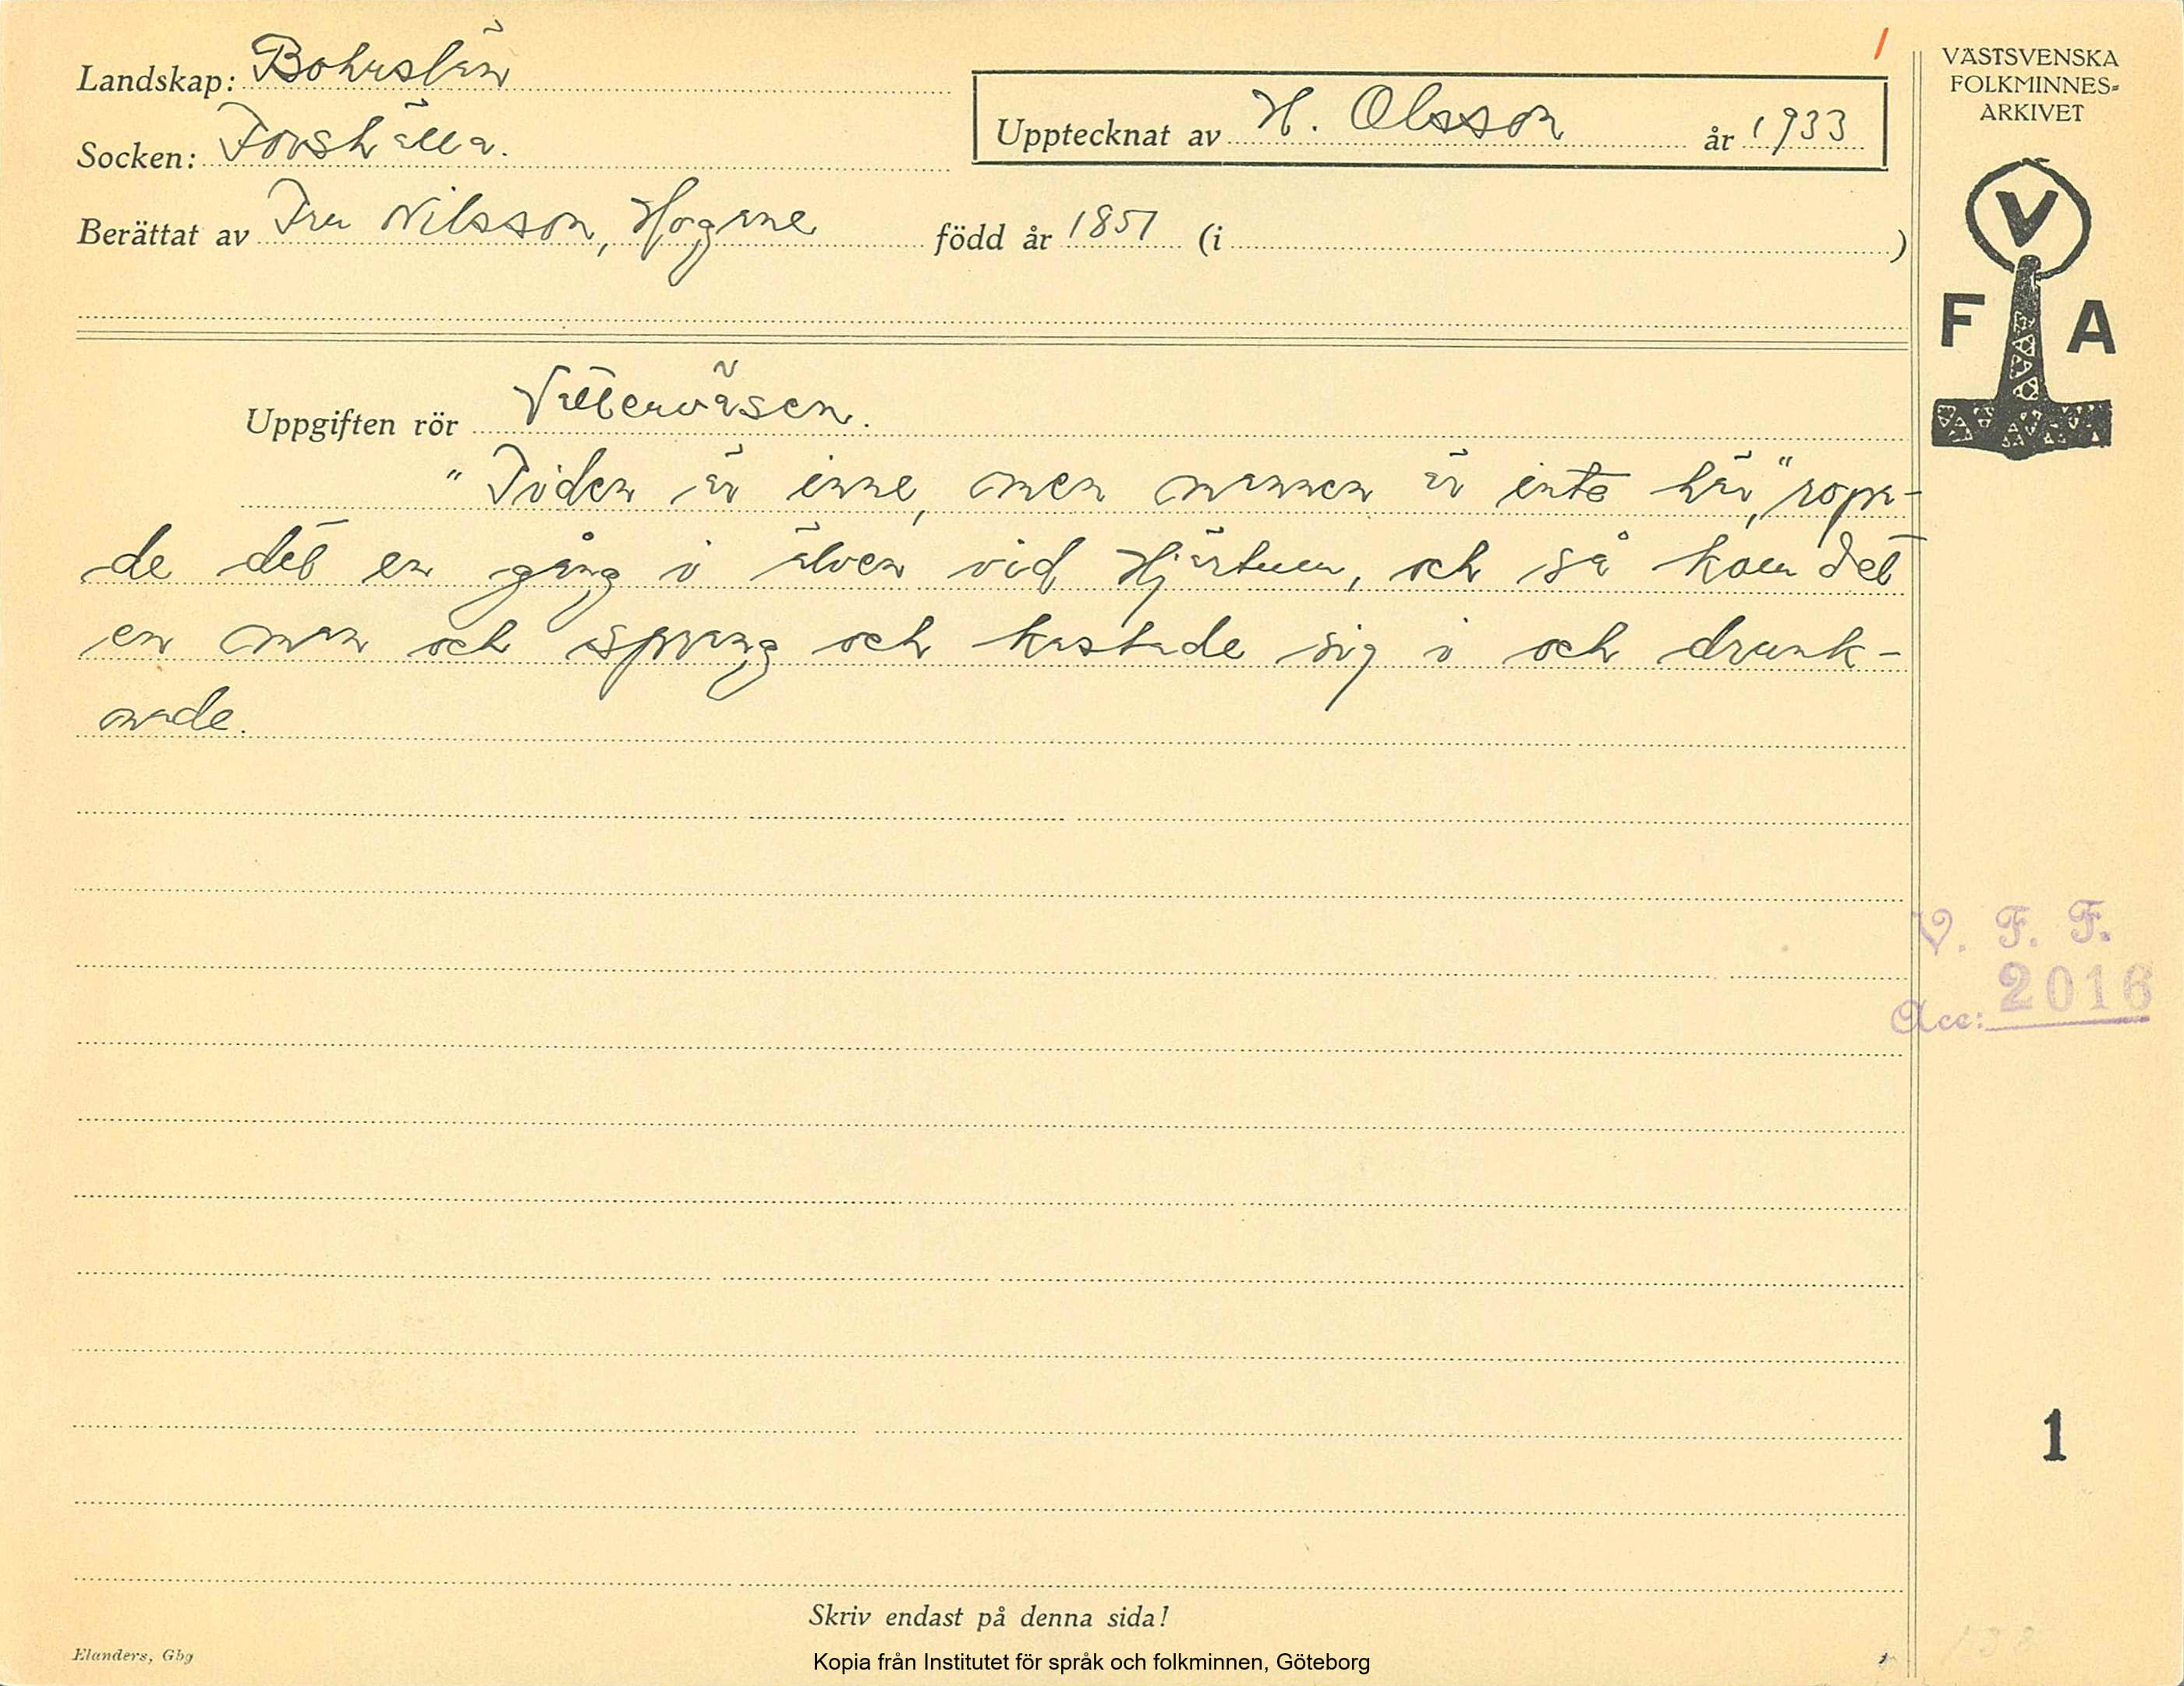 Landskap: Bohuslän
Socken: Forshälla.
Upptecknat av H. Olsson år 1933
Berättat av Fru Nilsson, Hogane född år 1851 (i )
Uppgiften rör Vattenväsen.
"Tiden är inne, men mannen är inte här," ropa-
de det en gång i älven vid Hjärtum, och så kom det
en man och sprang och kastade sig i och drunk-
nade.
Skriv endast på denna sida!
Elanders, Gbg
Kopia från Institutet för språk och folkminnen, Göteborg
1
VÄSTSVENSKA
FOLKMINNES-
ARKIVET
V
F A
V. F. F.
Acc: 2016
1